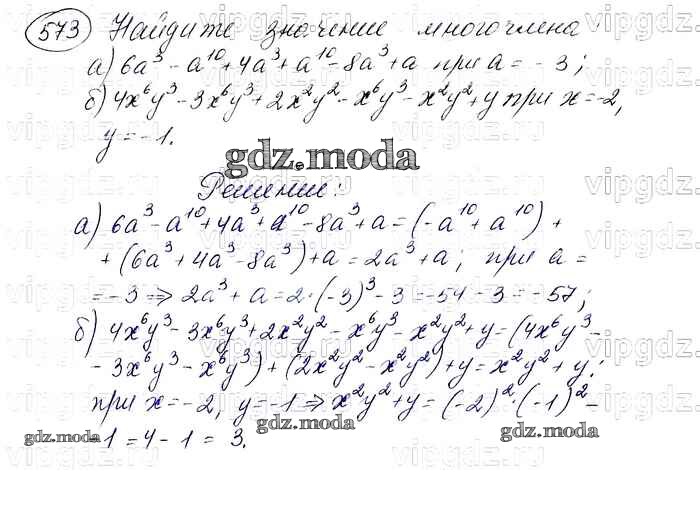 573 Найдите значение многочлена
а) 6a³ - a¹⁰ + 4a³ + a¹⁰ - 8a³ + a при a = -3;
б) 4x⁶y³ - 3x⁶y³ + 2x²y² - x⁶y³ - x²y² + y при x = -2,
y = -1.
gdz.moda
Решение:
а) 6a³ - a¹⁰ + 4a³ + a¹⁰ - 8a³ + a = (-a¹⁰ + a¹⁰) +
+ (6a³ + 4a³ - 8a³) + a = 2a³ + a; при a =
= -3 => 2a³ + a = 2·(-3)³ - 3 = -54 - 3 = -57;
б) 4x⁶y³ - 3x⁶y³ + 2x²y² - x⁶y³ - x²y² + y = (4x⁶y³ -
- 3x⁶y³ - x⁶y³) + (2x²y² - x²y²) + y = x²y² + y.
при x = -2, y = -1 => x²y² + y = (-2)²·(-1)² -
- 1 = 4 - 1 = 3.
gdz.moda gdz.moda gdz.moda